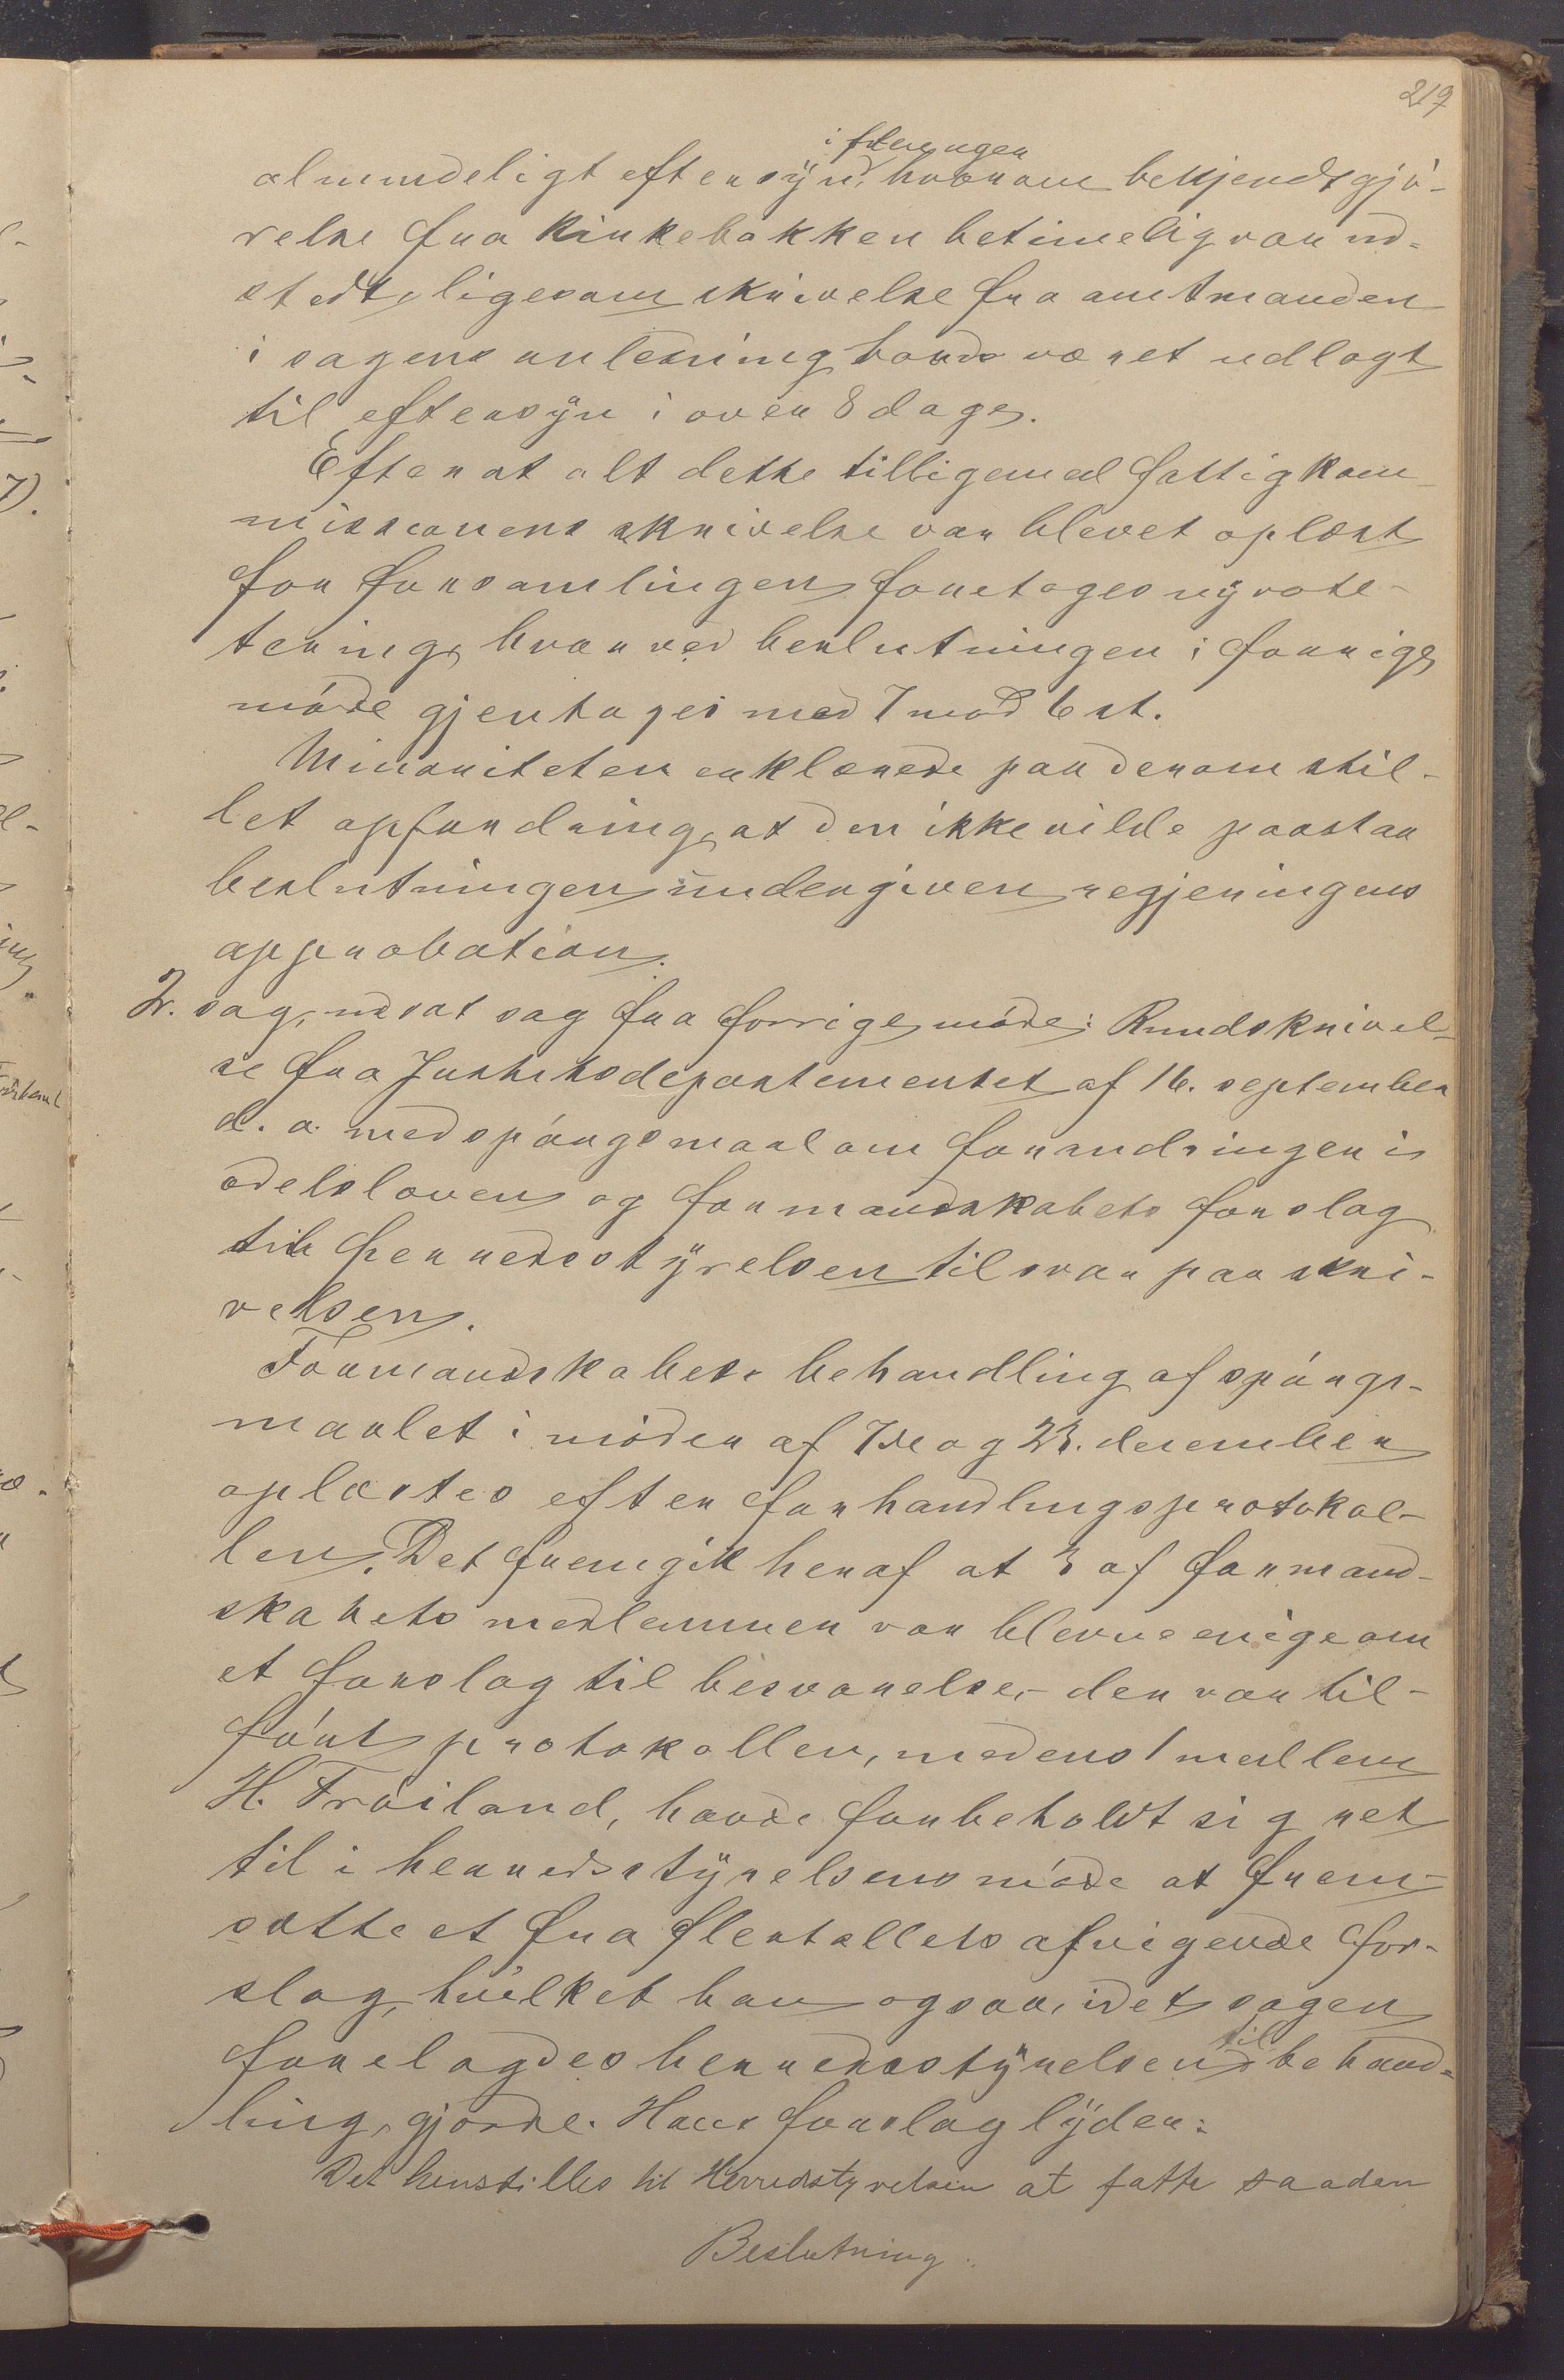 219
i foreningen
almindeligt eftersyn, hvorom bekjendtgjö-
relse fra kirkebakken betimelig var ud-
stedt, ligesom skrivelse fra amtmanden
i sagens anledning havde været udlagt
til eftersyn i over 8 dage.
Efter at alt dette tilligemed fattigkom-
missionens skrivelse var blevet oplæst
for forsamlingen foretoges ny vote-
tering, hvorved beslutningen i forrige
möde gjentoges med 7 mod 6 st.
Minoriteten erklærede paa derom stil-
let opfordring, at den ikke vilde paastaa
beslutningen undergiven regjeringens
approbation.
2. sag, udsat sag fra forrige möde: Rundskrivel-
se fra Justitsdepartementet af 16. september
d. a. med spörgsmaal om forandringer i
odelsloven og formandskabets forslag
til herredsstyrelsen til svar paa skri-
velsen.
Formandskabets behandling af spörgs-
maalet i möder af 7de og 23. december
oplæstes efter forhandlingsprotokol-
len. Det fremgik heraf at 3 af formand-
skabets medlemmer var blevne enige om
et forslag til besvarelse, den var til-
fört protokollen, medens 1 medlem
H. Tröiland, havde forbeholdt sig ret
til i herredsstyrelsens möde at frem-
sætte et fra flertallets afvigende for-
slag, hvilket han ogsaa, idet sagen
forelagdes herredsstyrelsen til behand-
ling, gjorde. Hans forslag lyder:
Det henstilles til Herredstyrelsen at fatte saadan
Beslutning.